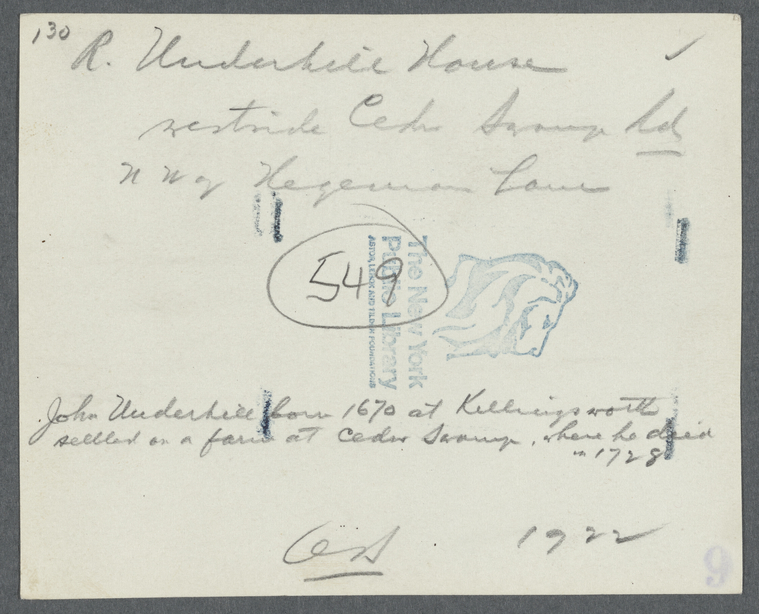 130
R. Underhill House
westside Cedar Swamp Rd
N W of Hegeman Lane
549
The New York
Public Library
ASTOR, LENOX AND TILDEN FOUNDATIONS
John Underhill born 1670 at Kellingsworth
settled on a farm at Cedar Swamp, where he died
in 1728
1922
9